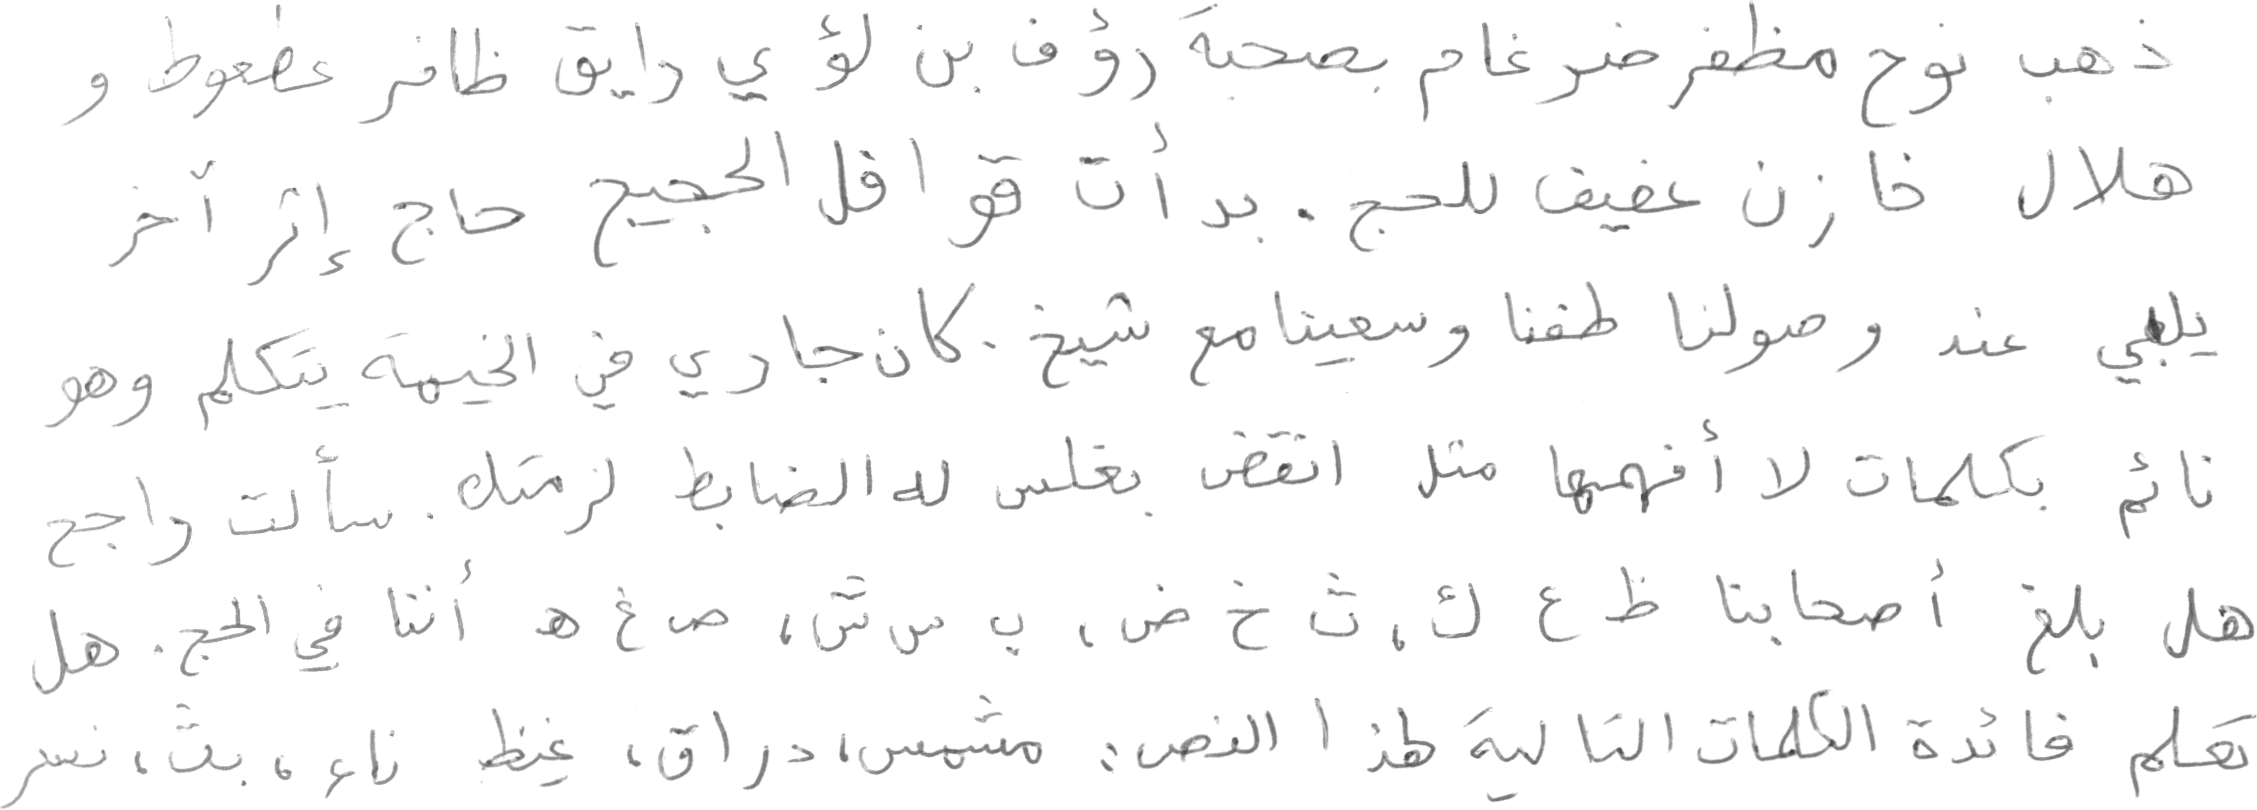 ذهب نوح مظفر ضرغام بصحبة رؤف بن لؤي رايق ظافر عطعوط و
هلال خازن عفيف للحج. بدأت قوافل الحجيج حاج إثر آخر
يلبي عند وصولنا طفنا وسعينا مع شيخ. كان جاري في الخيمة يتكلم وهو
نائم بكلمات لا أفهمها مثل انقض بغلس له الضابط لزمتك. سألت راجح
هل بلغ أصحابنا ظ ع ك، ث خ ض، ب س ش، ص غ ه أننا في الحج. هل
تعلم فائدة الكلمات التالية لهذا النص: مشمس، دراق، غيظ ناء، بث، نسر